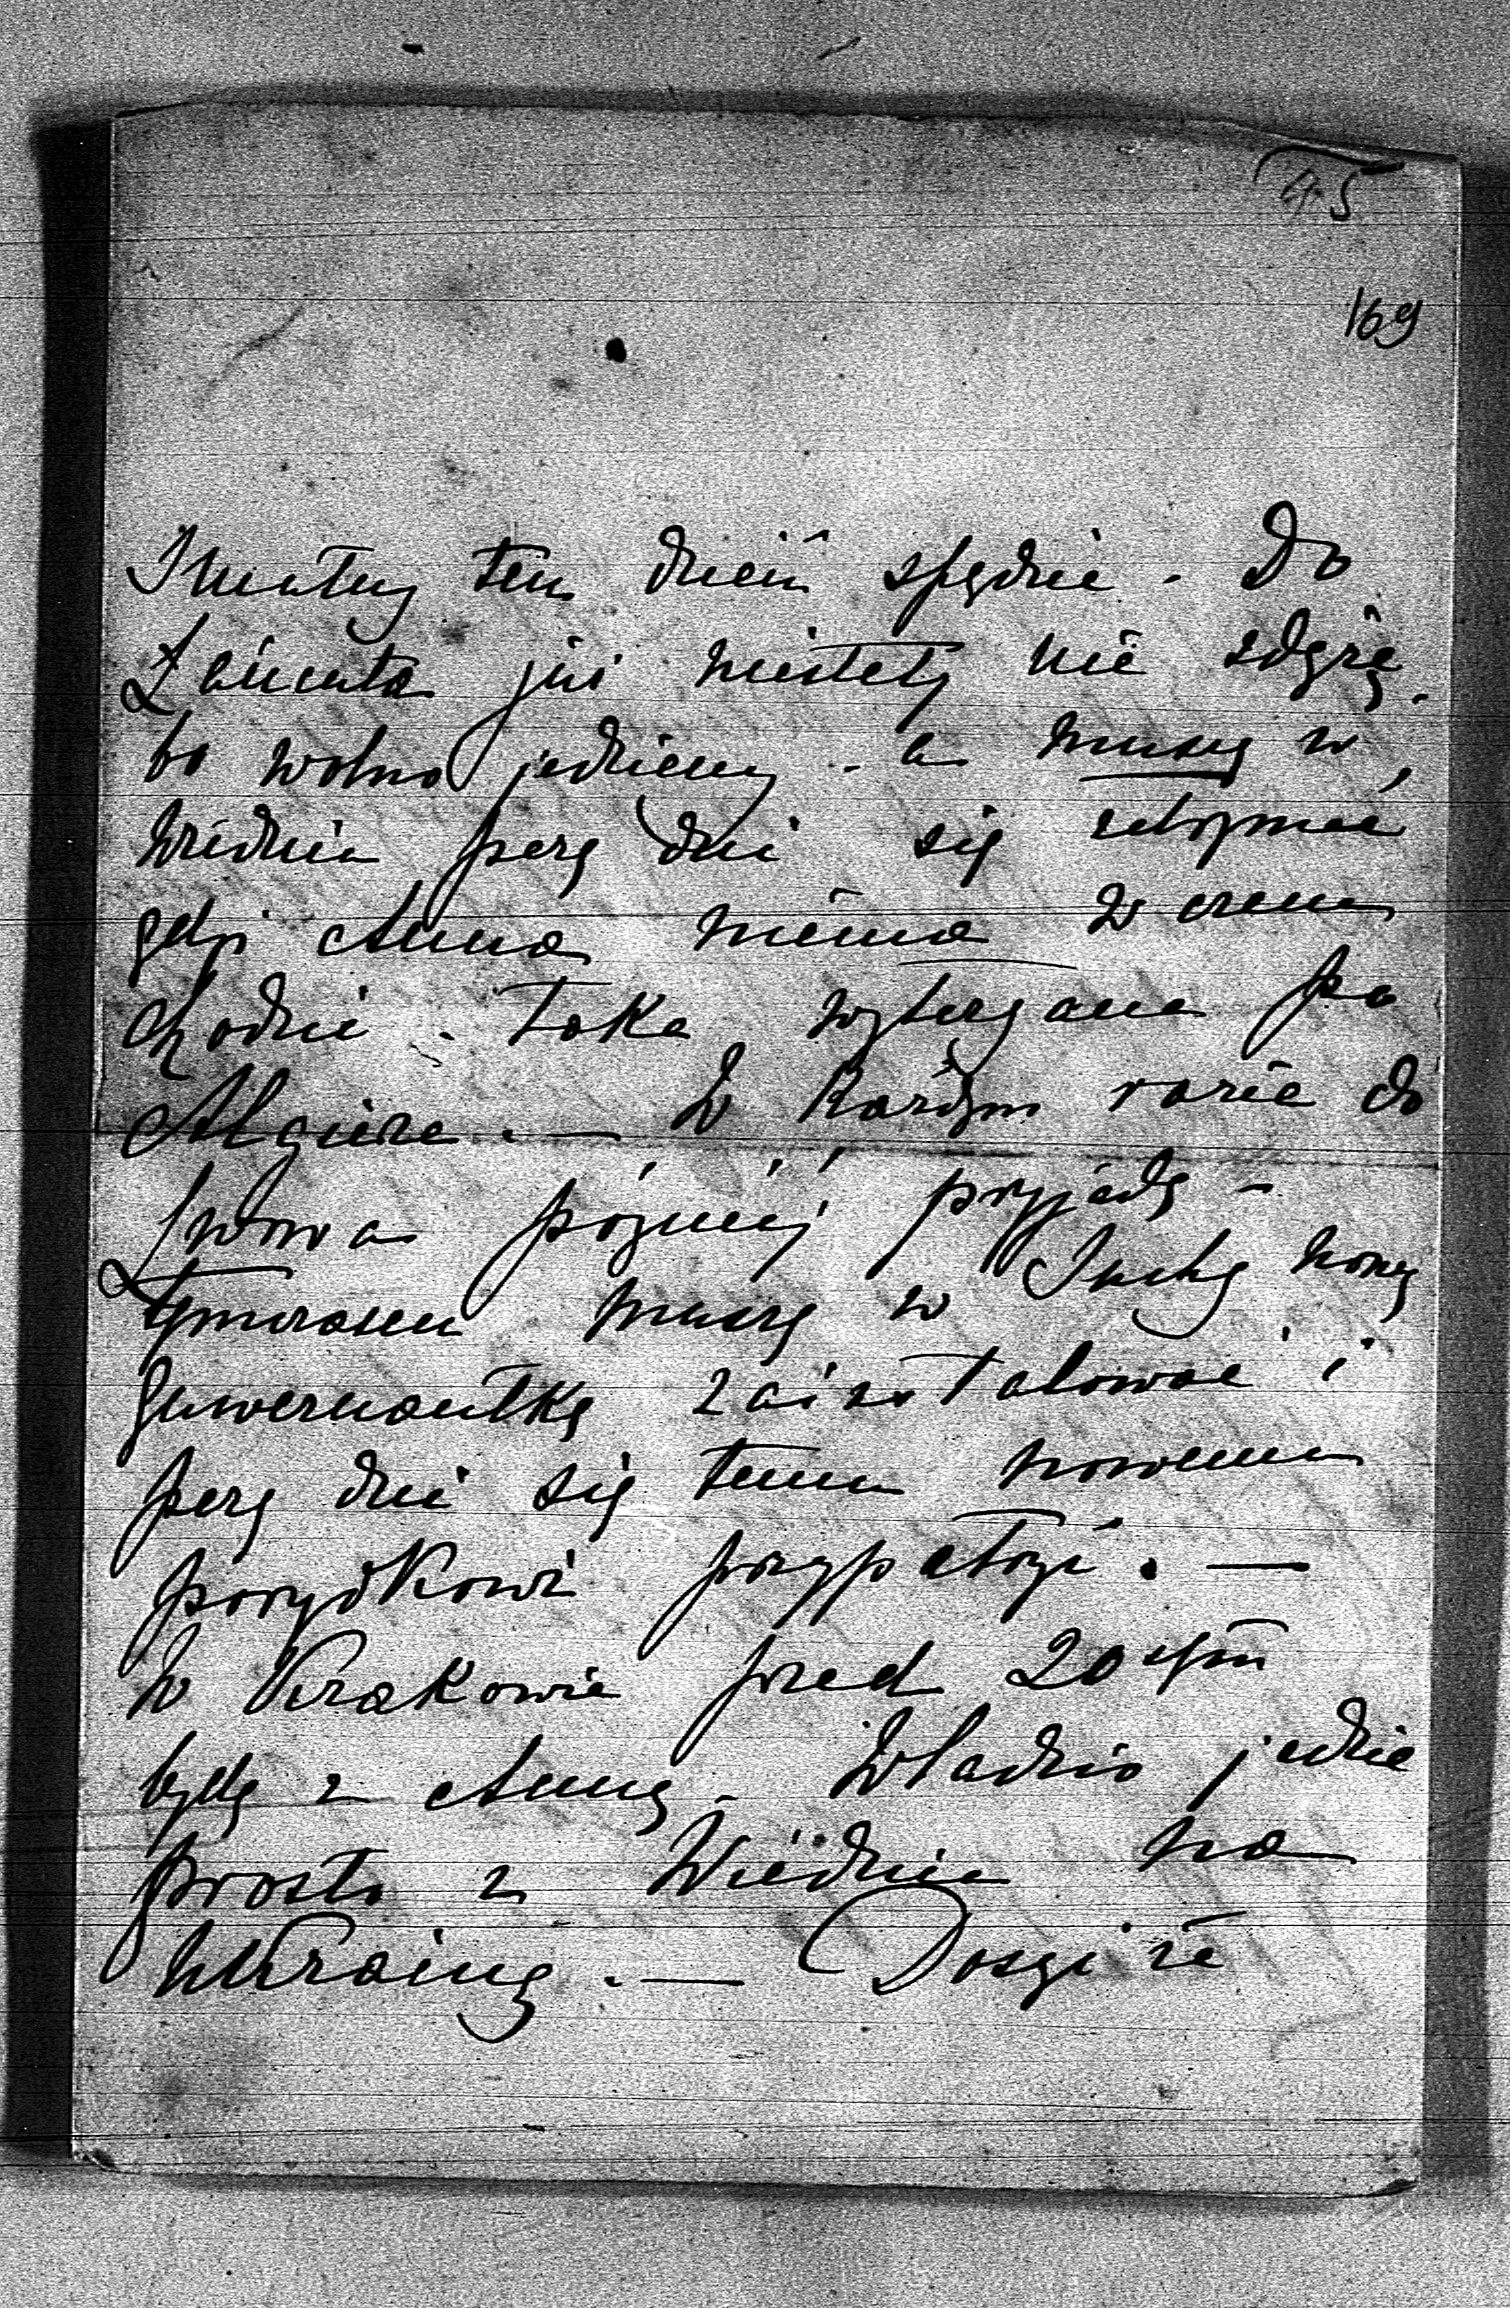 45
169
Smutny ten dzień spędzić. Do
Łańcuta już niestety nie zdążę.
bo wolno jedziemy. a muszę w
Wiedniu parę dni się zatrzymać,
gdyż Anna niema w czem
chodzić. Taka wytargana po
Algierze. — W każdym razie do
Lwowa później przyjadę —
tymczasem muszę w Suchy nową
guwernantkę zainstalować i
parę dni się temu nowemu
porządkowi przypatrzyć. —
W Krakowie przed 20stym
będę z Anną. Władzio jedzie
prosto z Wiednia na
Ukrainę. — Dosyć że